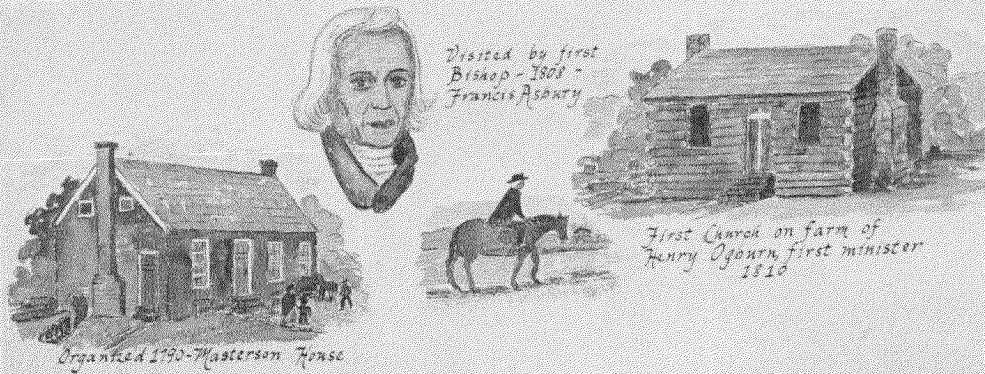 Visited by first
Bishop - 1808 -
Francis Asbury
First Church on farm of
Henry Ogburn, first minister
1810
Organized 1790-Masterson House